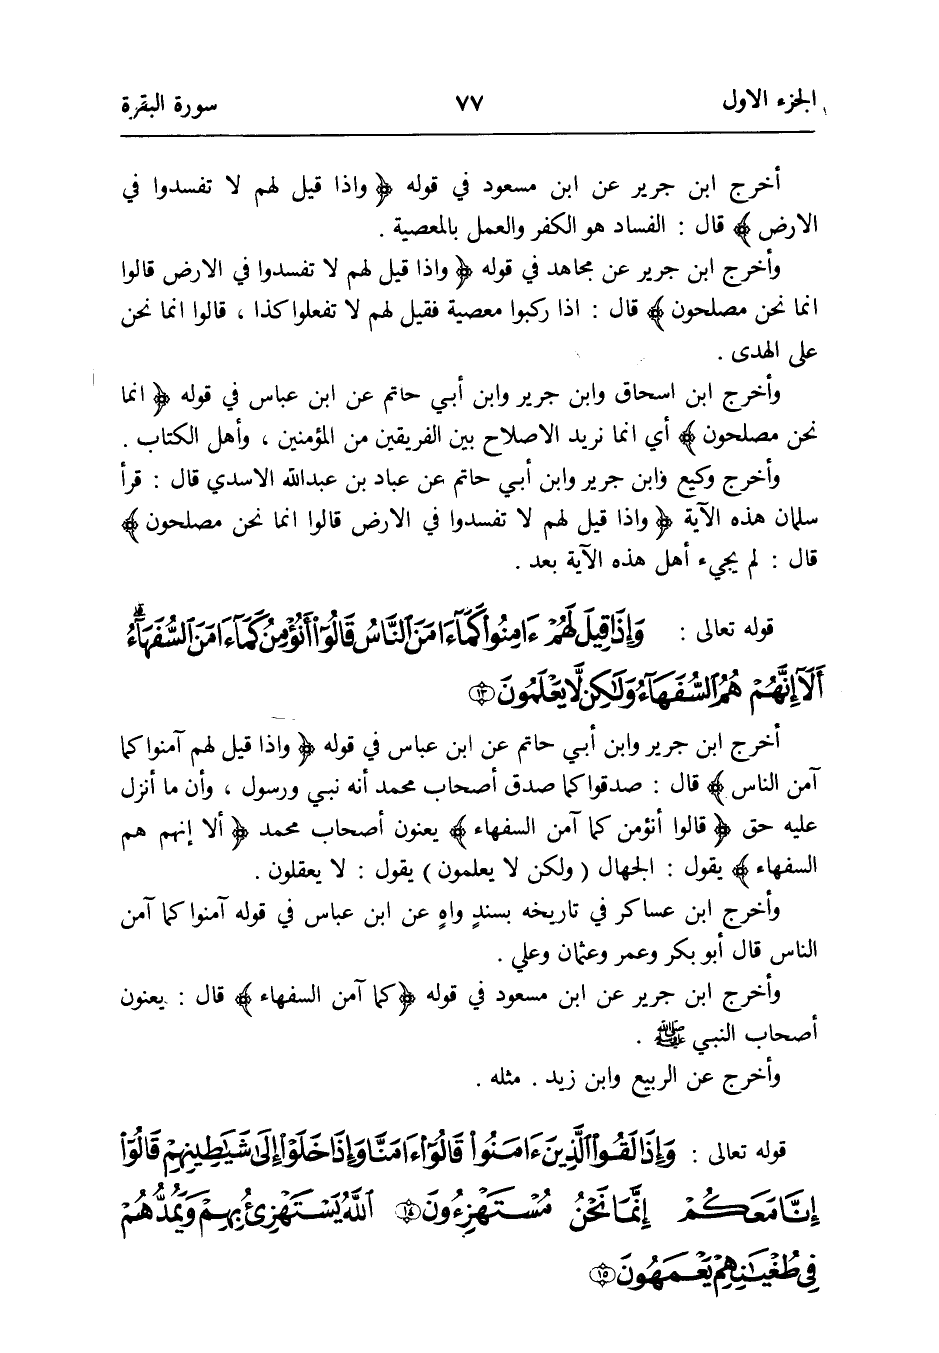 الجزء الاول ٧٧ سورة البقرة
أخرج ابن جرير عن ابن مسعود في قوله ﴿ واذا قيل لهم لا تفسدوا في
الارض ﴾ قال : الفساد هو الكفر والعمل بالمعصية .
وأخرج ابن جرير عن مجاهد في قوله ﴿ واذا قيل لهم لا تفسدوا في الارض قالوا
انما نحن مصلحون ﴾ قال : اذا ركبوا معصية فقيل لهم لا تفعلوا كذا ، قالوا انما نحن
على الهدى .
وأخرج ابن اسحاق وابن جرير وابن أبي حاتم عن ابن عباس في قوله ﴿ انما
نحن مصلحون ﴾ أي انما نريد الاصلاح بين الفريقين من المؤمنين ، وأهل الكتاب .
وأخرج وكيع وابن جرير وابن أبي حاتم عن عباد بن عبدالله الاسدي قال : قرأ
سلمان هذه الآية ﴿ واذا قيل لهم لا تفسدوا في الارض قالوا انما نحن مصلحون ﴾
قال : لم يجيء أهل هذه الآية بعد .
قوله تعالى : وَإِذَا قِيلَ لَهُمْ ءَامِنُوا۟ كَمَآ ءَامَنَ ٱلنَّاسُ قَالُوٓا۟ أَنُؤْمِنُ كَمَآ ءَامَنَ ٱلسُّفَهَآءُۗ
أَلَآ إِنَّهُمْ هُمُ ٱلسُّفَهَآءُ وَلَٰكِن لَّا يَعْلَمُونَ ﴿١٣﴾
أخرج ابن جرير وابن أبي حاتم عن ابن عباس في قوله ﴿ واذا قيل لهم آمنوا كما
آمن الناس ﴾ قال : صدقوا كما صدق أصحاب محمد أنه نبي ورسول ، وأن ما أنزل
عليه حق ﴿ قالوا أنؤمن كما آمن السفهاء ﴾ يعنون أصحاب محمد ﴿ ألا إنهم هم
السفهاء ﴾ يقول : الجهال ( ولكن لا يعلمون ) يقول : لا يعقلون .
وأخرج ابن عساكر في تاريخه بسندٍ واهٍ عن ابن عباس في قوله آمنوا كما آمن
الناس قال أبو بكر وعمر وعثمان وعلي .
وأخرج ابن جرير عن ابن مسعود في قوله ﴿ كما آمن السفهاء ﴾ قال : يعنون
أصحاب النبي ﷺ .
وأخرج عن الربيع وابن زيد . مثله .
قوله تعالى : وَإِذَا لَقُوا۟ ٱلَّذِينَ ءَامَنُوا۟ قَالُوٓا۟ ءَامَنَّا وَإِذَا خَلَوْا۟ إِلَىٰ شَيَٰطِينِهِمْ قَالُوٓا۟
إِنَّا مَعَكُمْ إِنَّمَا نَحْنُ مُسْتَهْزِءُونَ ﴿١٤﴾ ٱللَّهُ يَسْتَهْزِئُ بِهِمْ وَيَمُدُّهُمْ
فِى طُغْيَٰنِهِمْ يَعْمَهُونَ ﴿١٥﴾